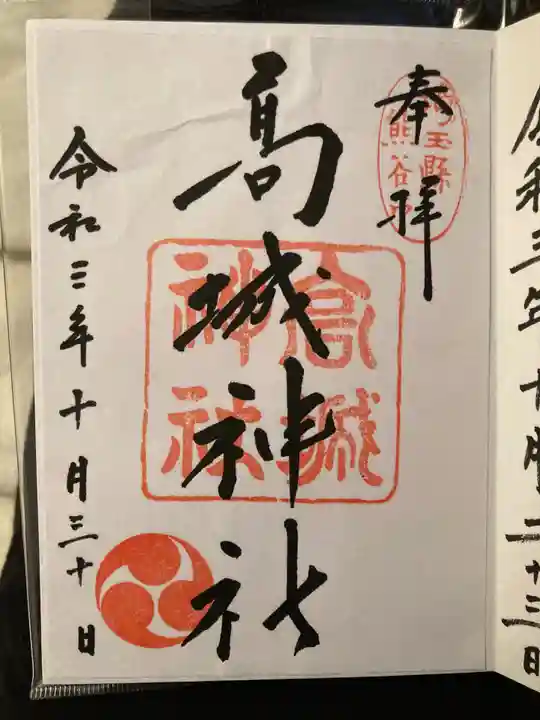 奉拝
埼玉縣
熊谷市
高城神社
高城
神社
令和三年十月三十日
令和三年十月二十三日